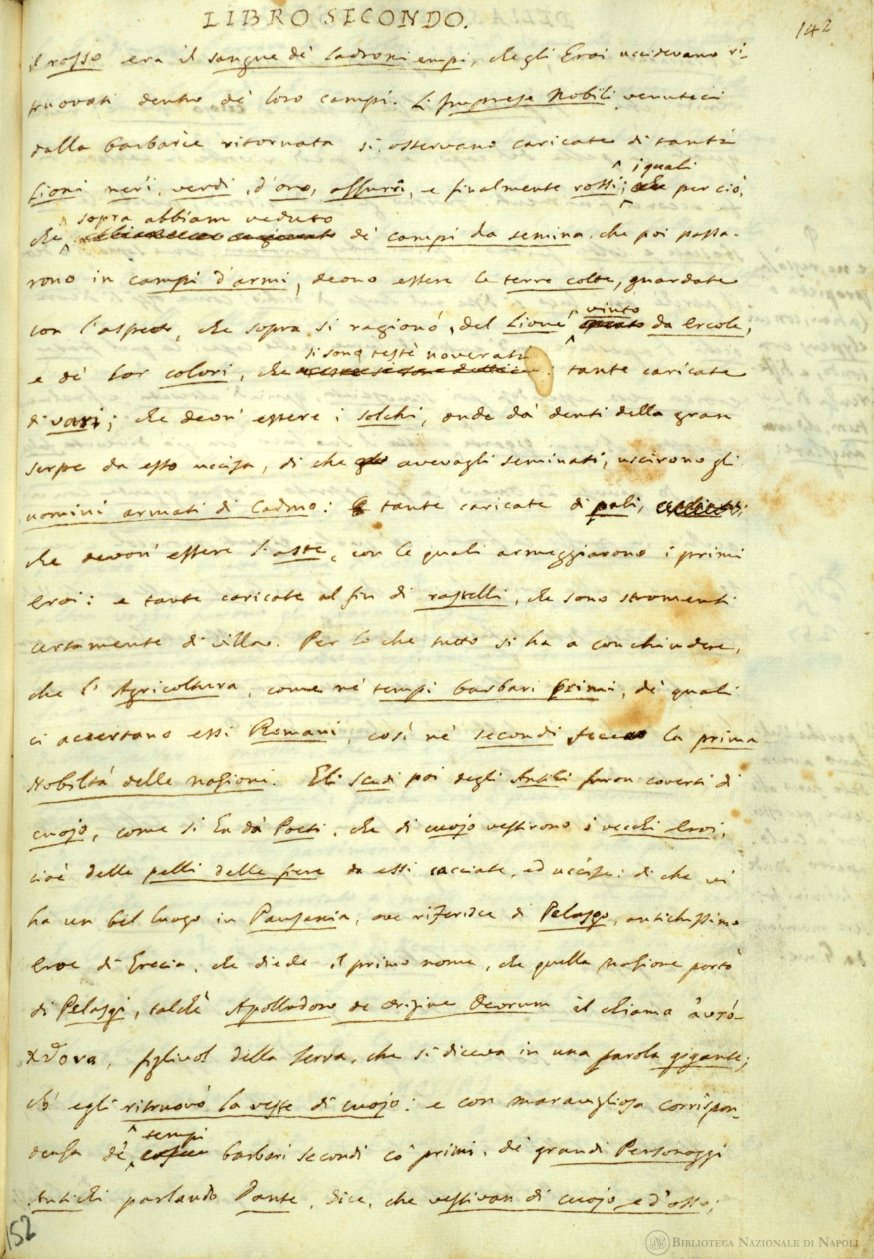 LIBRO SECONDO.
142
il rosso era il sangue de' ladroni empj, che gli Eroi uccidevano ri-
truovati dentro de' loro campi. L'Imprese Nobili venuteci
dalla barbarie ritornata si osservano caricate di tanti
i quali
Lioni neri, verdi, d'oro, azzurri, e finalmente rossi; per ciò,
sopra abbiam veduto
che de' campi da semina, che poi passa-
rono in campi d'armi, deono essere le terre colte, guardate
vinto
con l'aspetto, che sopra si ragionò, del Lione da Ercole,
si son testè noverati
e de' lor colori, che : tante caricate
di vari; che deon' essere i solchi, onde da' denti della gran
serpe da esso uccisa, di che avevagli seminati, uscirono gli
uomini armati di Cadmo: e tante caricate di pali,
che devon' essere l'aste, con le quali armeggiarono i primi
Eroi: e tante caricate al fin di rastelli, che sono stromenti
certamente di villa. Per lo che tutto si ha a conchiudere,
che l'Agricoltura, come ne' tempi barbari primi, de' quali
ci accertano essi Romani, così ne' secondi fece la prima
Nobiltà delle nazioni. Gli scudi poi degli Antichi furon coverti di
cuojo, come si ha da' Poeti, che di cuojo vestirono i vecchi Eroi,
cioè delle pelli delle fiere da essi cacciate, ed uccise: di che vi
ha un bel luogo in Pausania, ove riferisce di Pelasgo, antichissimo
Eroe di Grecia, che diede il primo nome, che quella nazione portò
di Pelasgi, talchè Apollodoro de origine Deorum il chiama αὐτό-
χθονα, figliuol della Terra, che si diceva in una parola gigante;
ch' egli ritruovò la veste di cuojo: e con maravigliosa corrispon-
tempi
denza de' barbari secondi co' primi, de' grandi Personaggi
Antichi parlando Dante, dice, che vestivan di cuojo e d'osso;
152
BIBLIOTECA NAZIONALE DI NAPOLI